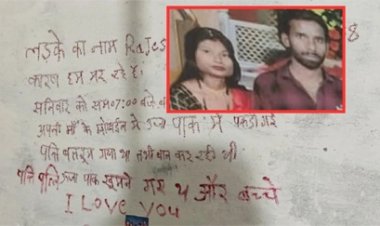 लड़के का नाम RAJES
8
कारण हम मर रहे हैं।
सनिवार को साम 07:00 बजे
अपनी माँ के मोबाईल में पाक में पकडी गई
पति बातरूम गया था तभी बात कर रही थी
पति पत्नि पाक घुमने गए थे और बच्चे
I LOVE YOU